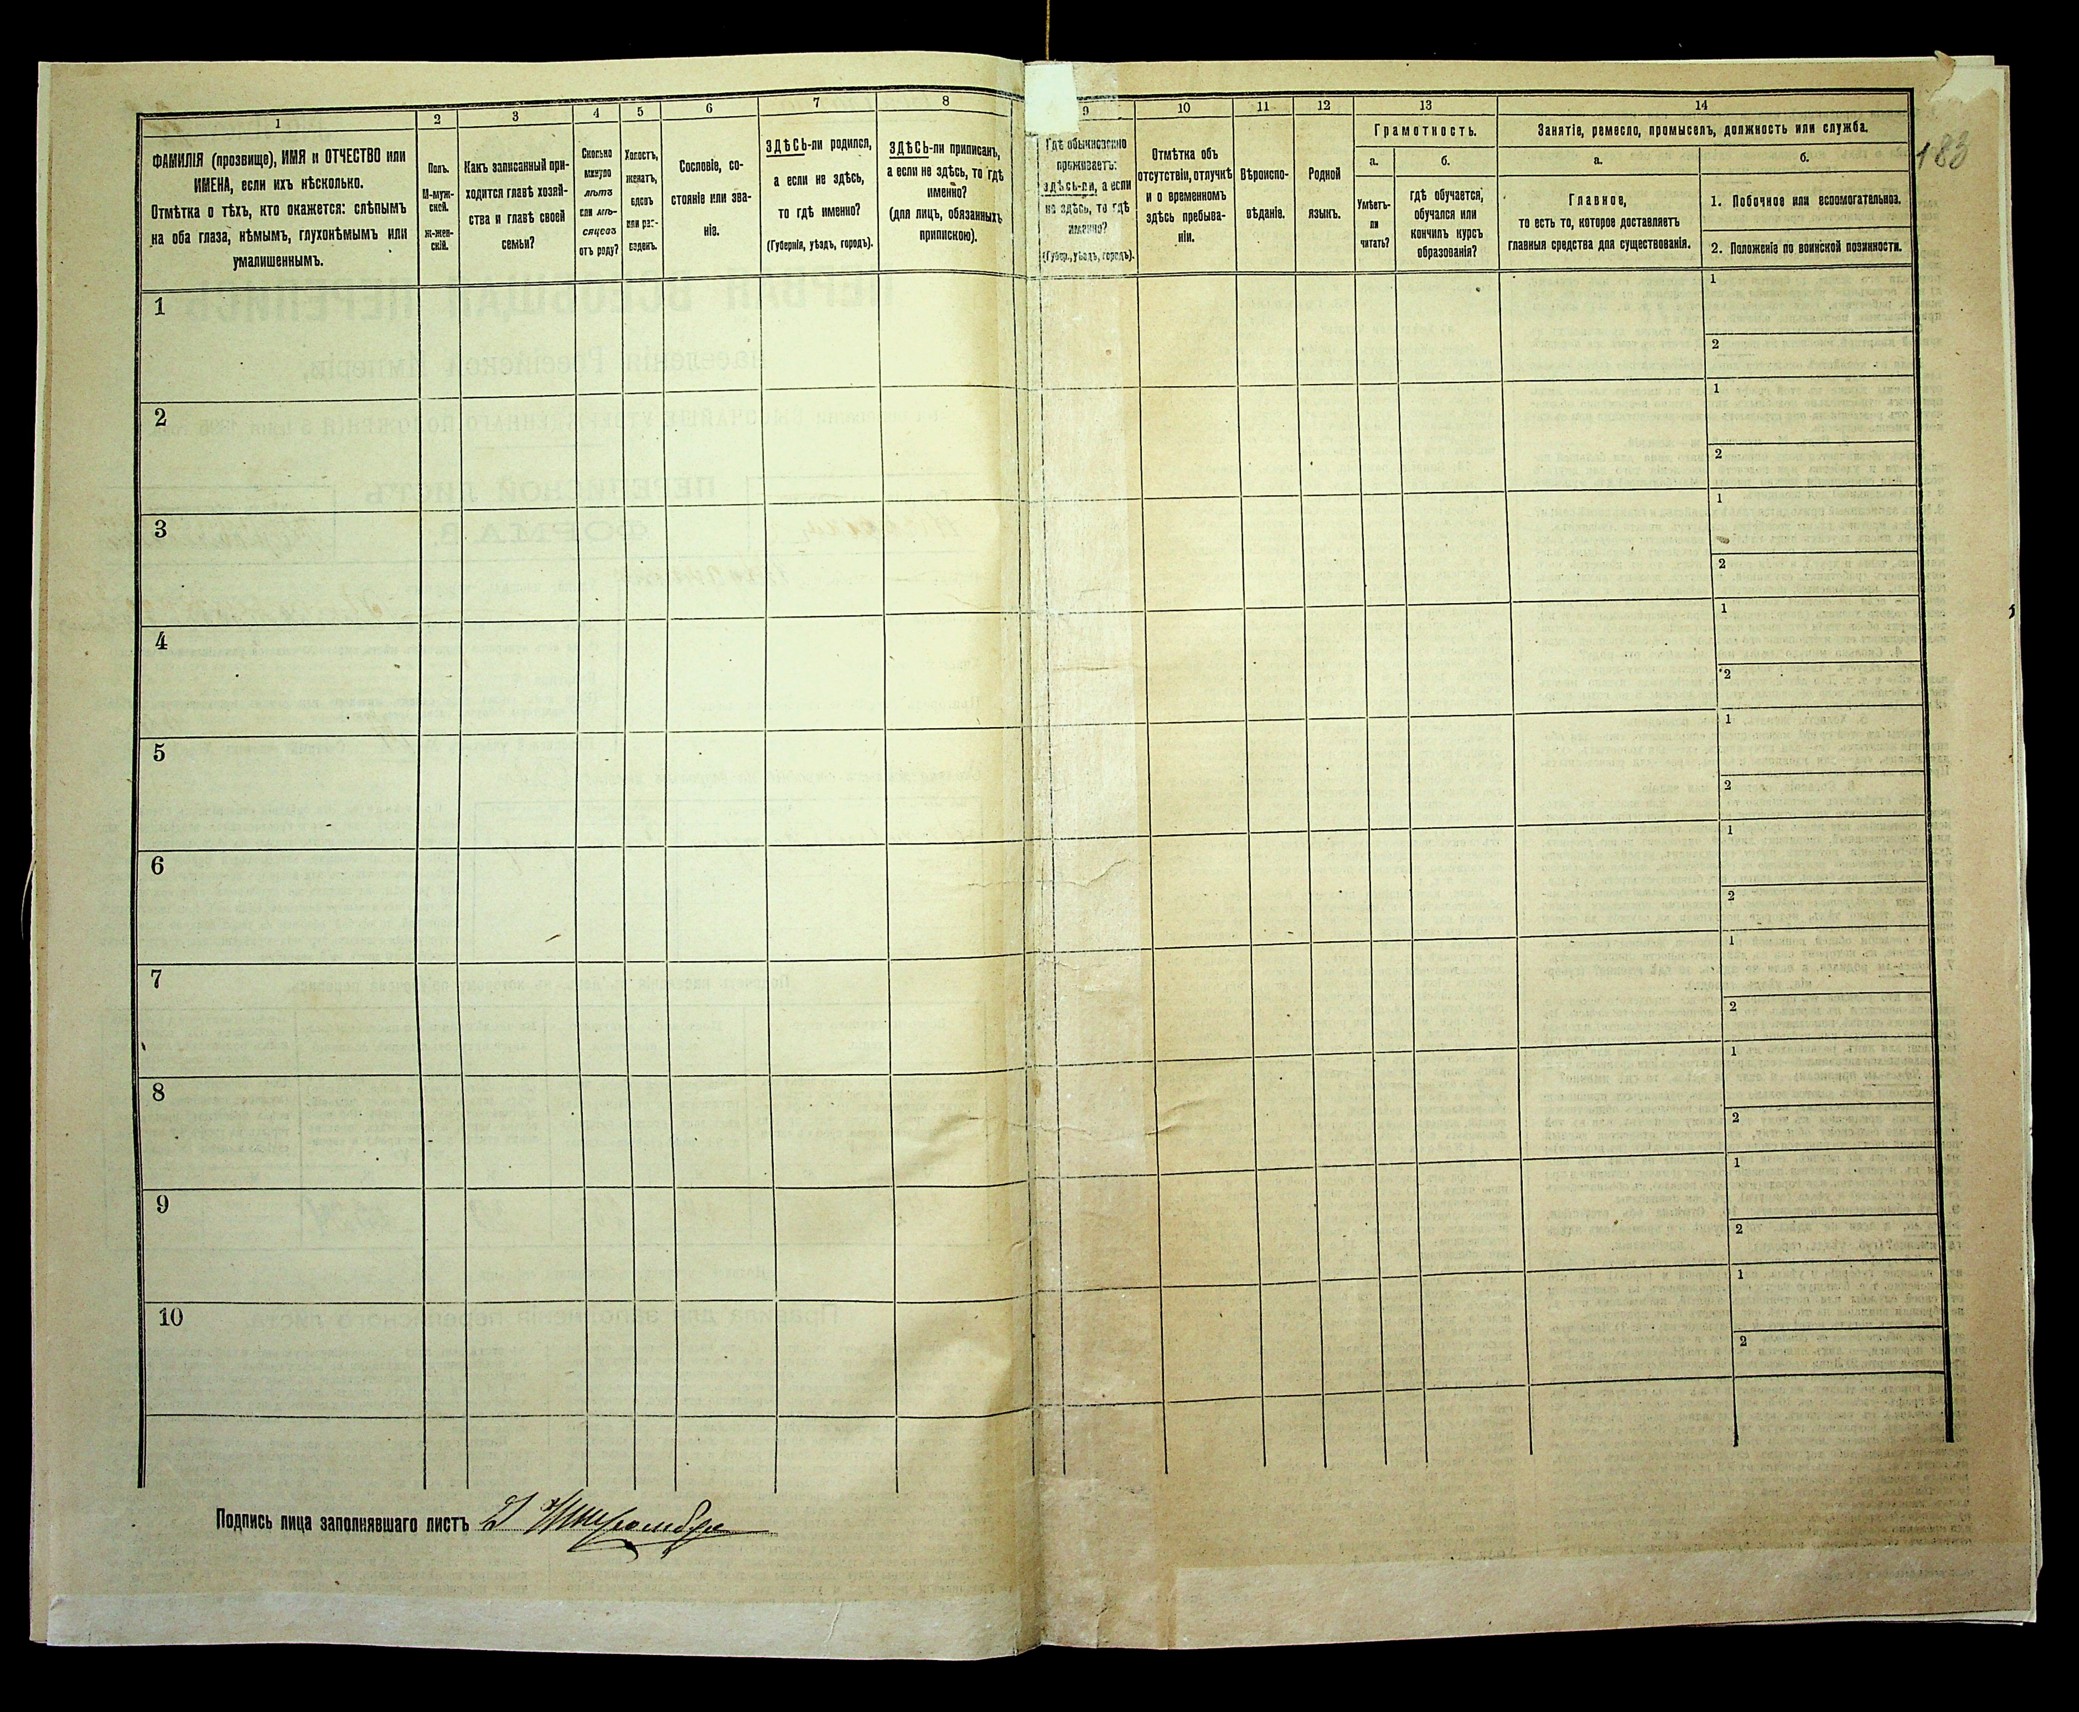 1
2
3
4
5
6
7
8
9
10
11
12
13
14
ФАМИЛІЯ (прозвище), ИМЯ и ОТЧЕСТВО или
ИМЕНА, если ихъ нѣсколько.
Отмѣтка о тѣхъ, кто окажется: слѣпымъ
на оба глаза, нѣмымъ, глухонѣмымъ или
умалишеннымъ.
Полъ.
М-муж-
ской.
ж-жен-
скій.
Какъ записанный при-
ходится главѣ хозяй-
ства и главѣ своей
семьи?
Сколько
минуло
лѣтъ
или мѣ-
сяцевъ
отъ роду?
Холостъ,
женатъ,
вдовъ
или раз-
веденъ.
Сословіе, со-
стояніе или зва-
ніе.
ЗДѢСЬ-ли родился,
а если не здѣсь,
то гдѣ именно?
(Губернія, уѣздъ, городъ).
ЗДѢСЬ-ли приписанъ,
а если не здѣсь, то гдѣ
именно?
(для лицъ, обязанныхъ
припискою).
Гдѣ обыкновенно
проживаетъ:
здѣсь-ли, а если
не здѣсь, то гдѣ
именно?
(Губер., уѣздъ, городъ).
Отмѣтка объ
отсутствіи, отлучкѣ
и о временномъ
здѣсь пребыва-
ніи.
Вѣроиспо-
вѣданіе.
Родной
языкъ.
Грамотность.
а.
б.
Умѣетъ-
ли
читать?
гдѣ обучается,
обучался или
кончилъ курсъ
образованія?
Занятіе, ремесло, промыселъ, должность или служба.
а.
б.
Главное,
то есть то, которое доставляетъ
главныя средства для существованія.
1. Побочное или вспомогательное.
2. Положеніе по воинской повинности.
183
1
1
2
2
1
2
3
1
2
4
1
2
5
1
2
6
1
2
7
1
2
8
1
2
9
1
2
10
1
2
Подпись лица заполнявшаго листъ